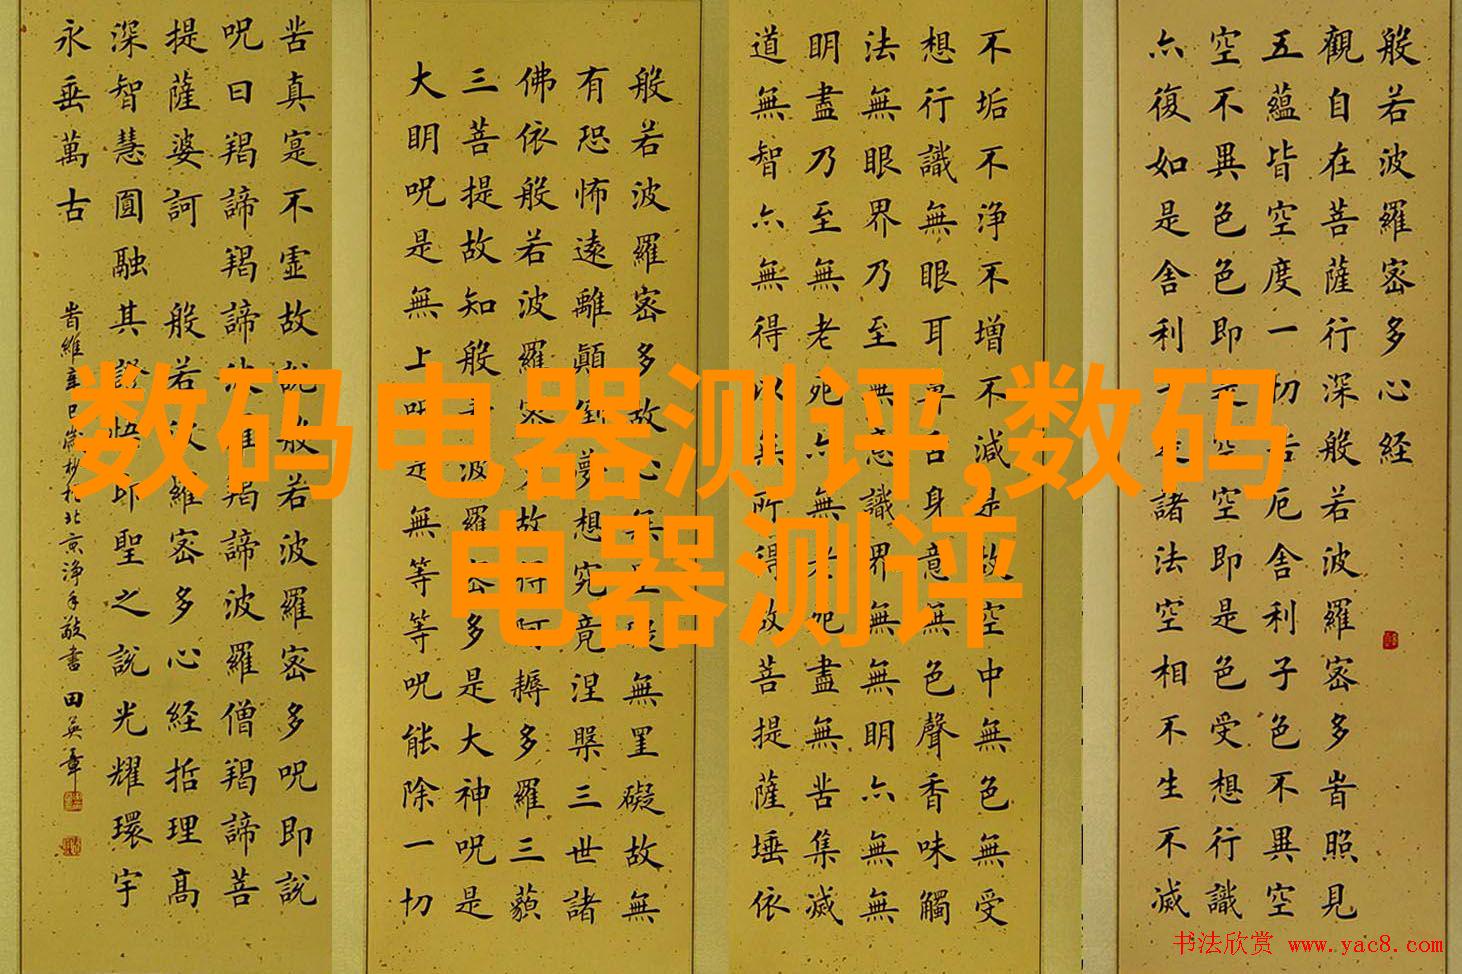 般若波羅密多心経
觀自在菩薩行深般若波羅密多旹照見
五蘊皆空度一切苦厄舍利子色不異空
空不異色色即是空空即是色受想行識
亦復如是舍利子是諸法空相不生不滅
不垢不浄不增不減是故空中無色無受
想行識無眼耳鼻舌身意無色聲香味觸
法無眼界乃至無意識界無無明亦無無
明盡乃至無老死亦無老死盡無苦集滅
道無智亦無得以無所得故菩提薩埵依
般若波羅密多故心無罣礙無罣礙故無
有恐怖遠離顛倒夢想究竟涅槃三世諸
佛依般若波羅密多故得阿耨多羅三藐
三菩提故知般若波羅密多是大神呪是
大明呪是無上呪是無等等呪能除一切
苦真寔不虛故説般若波羅密多呪即説
呪曰羯諦羯諦波羅羯諦波羅僧羯諦菩
提薩婆訶 般若波羅密多心経括理高
深智慧圓融其證悟即聖之説光耀環宇
永垂萬古
旹維辛巳歲杪於北京浄手敬書 田英章
数码电器测评,数码
电器测评
书法欣赏 www.yac8.com